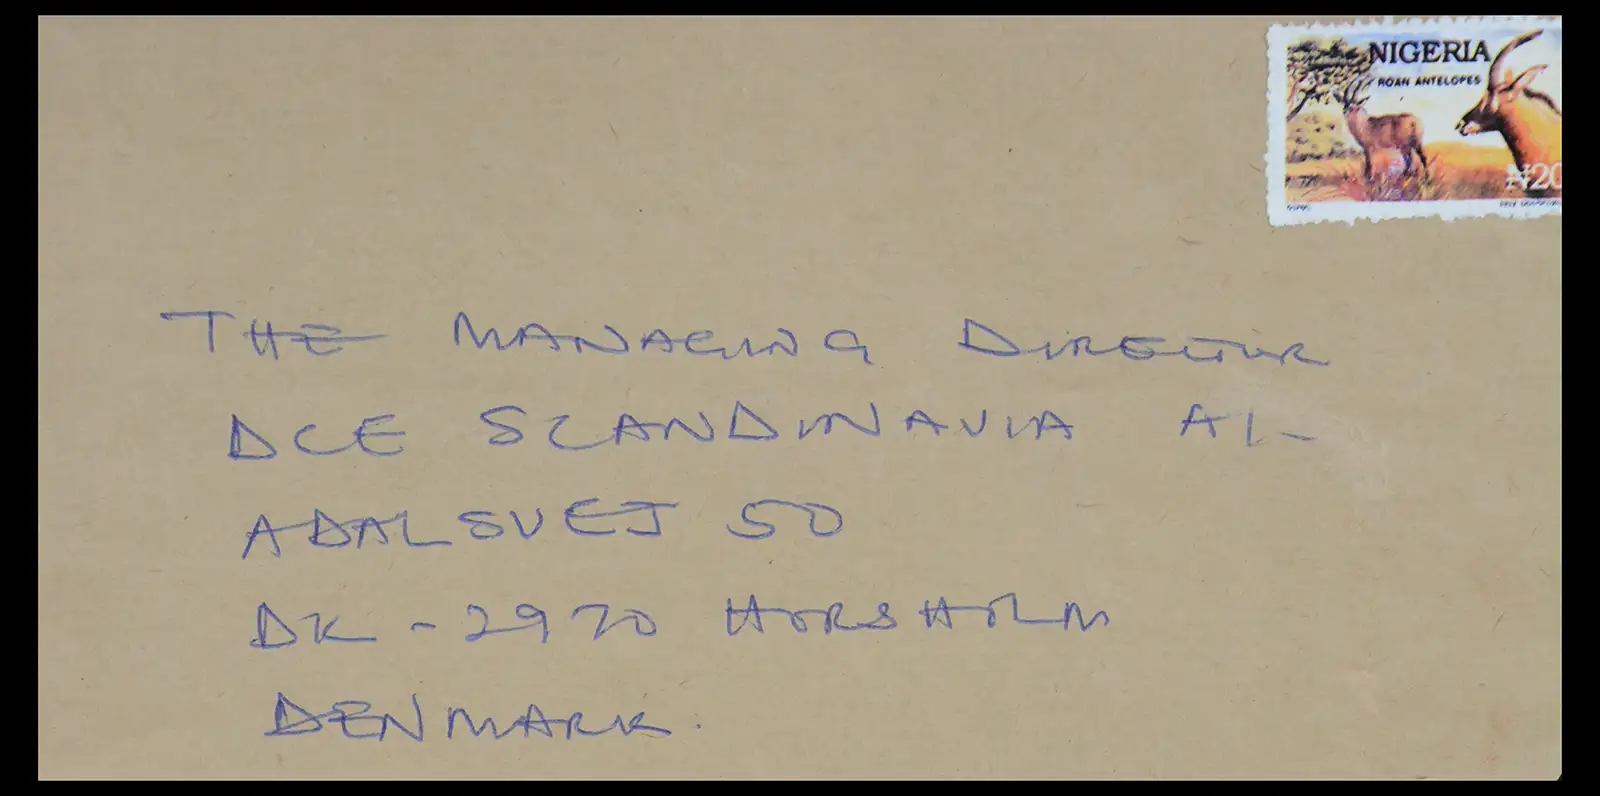 NIGERIA
ROAN ANTELOPES
₦20
THE MANAGING DIRECTOR
DCE SCANDINAVIA A/-
ADALSVEJ 50
DK-2970 HORSHOLM
DENMARK.